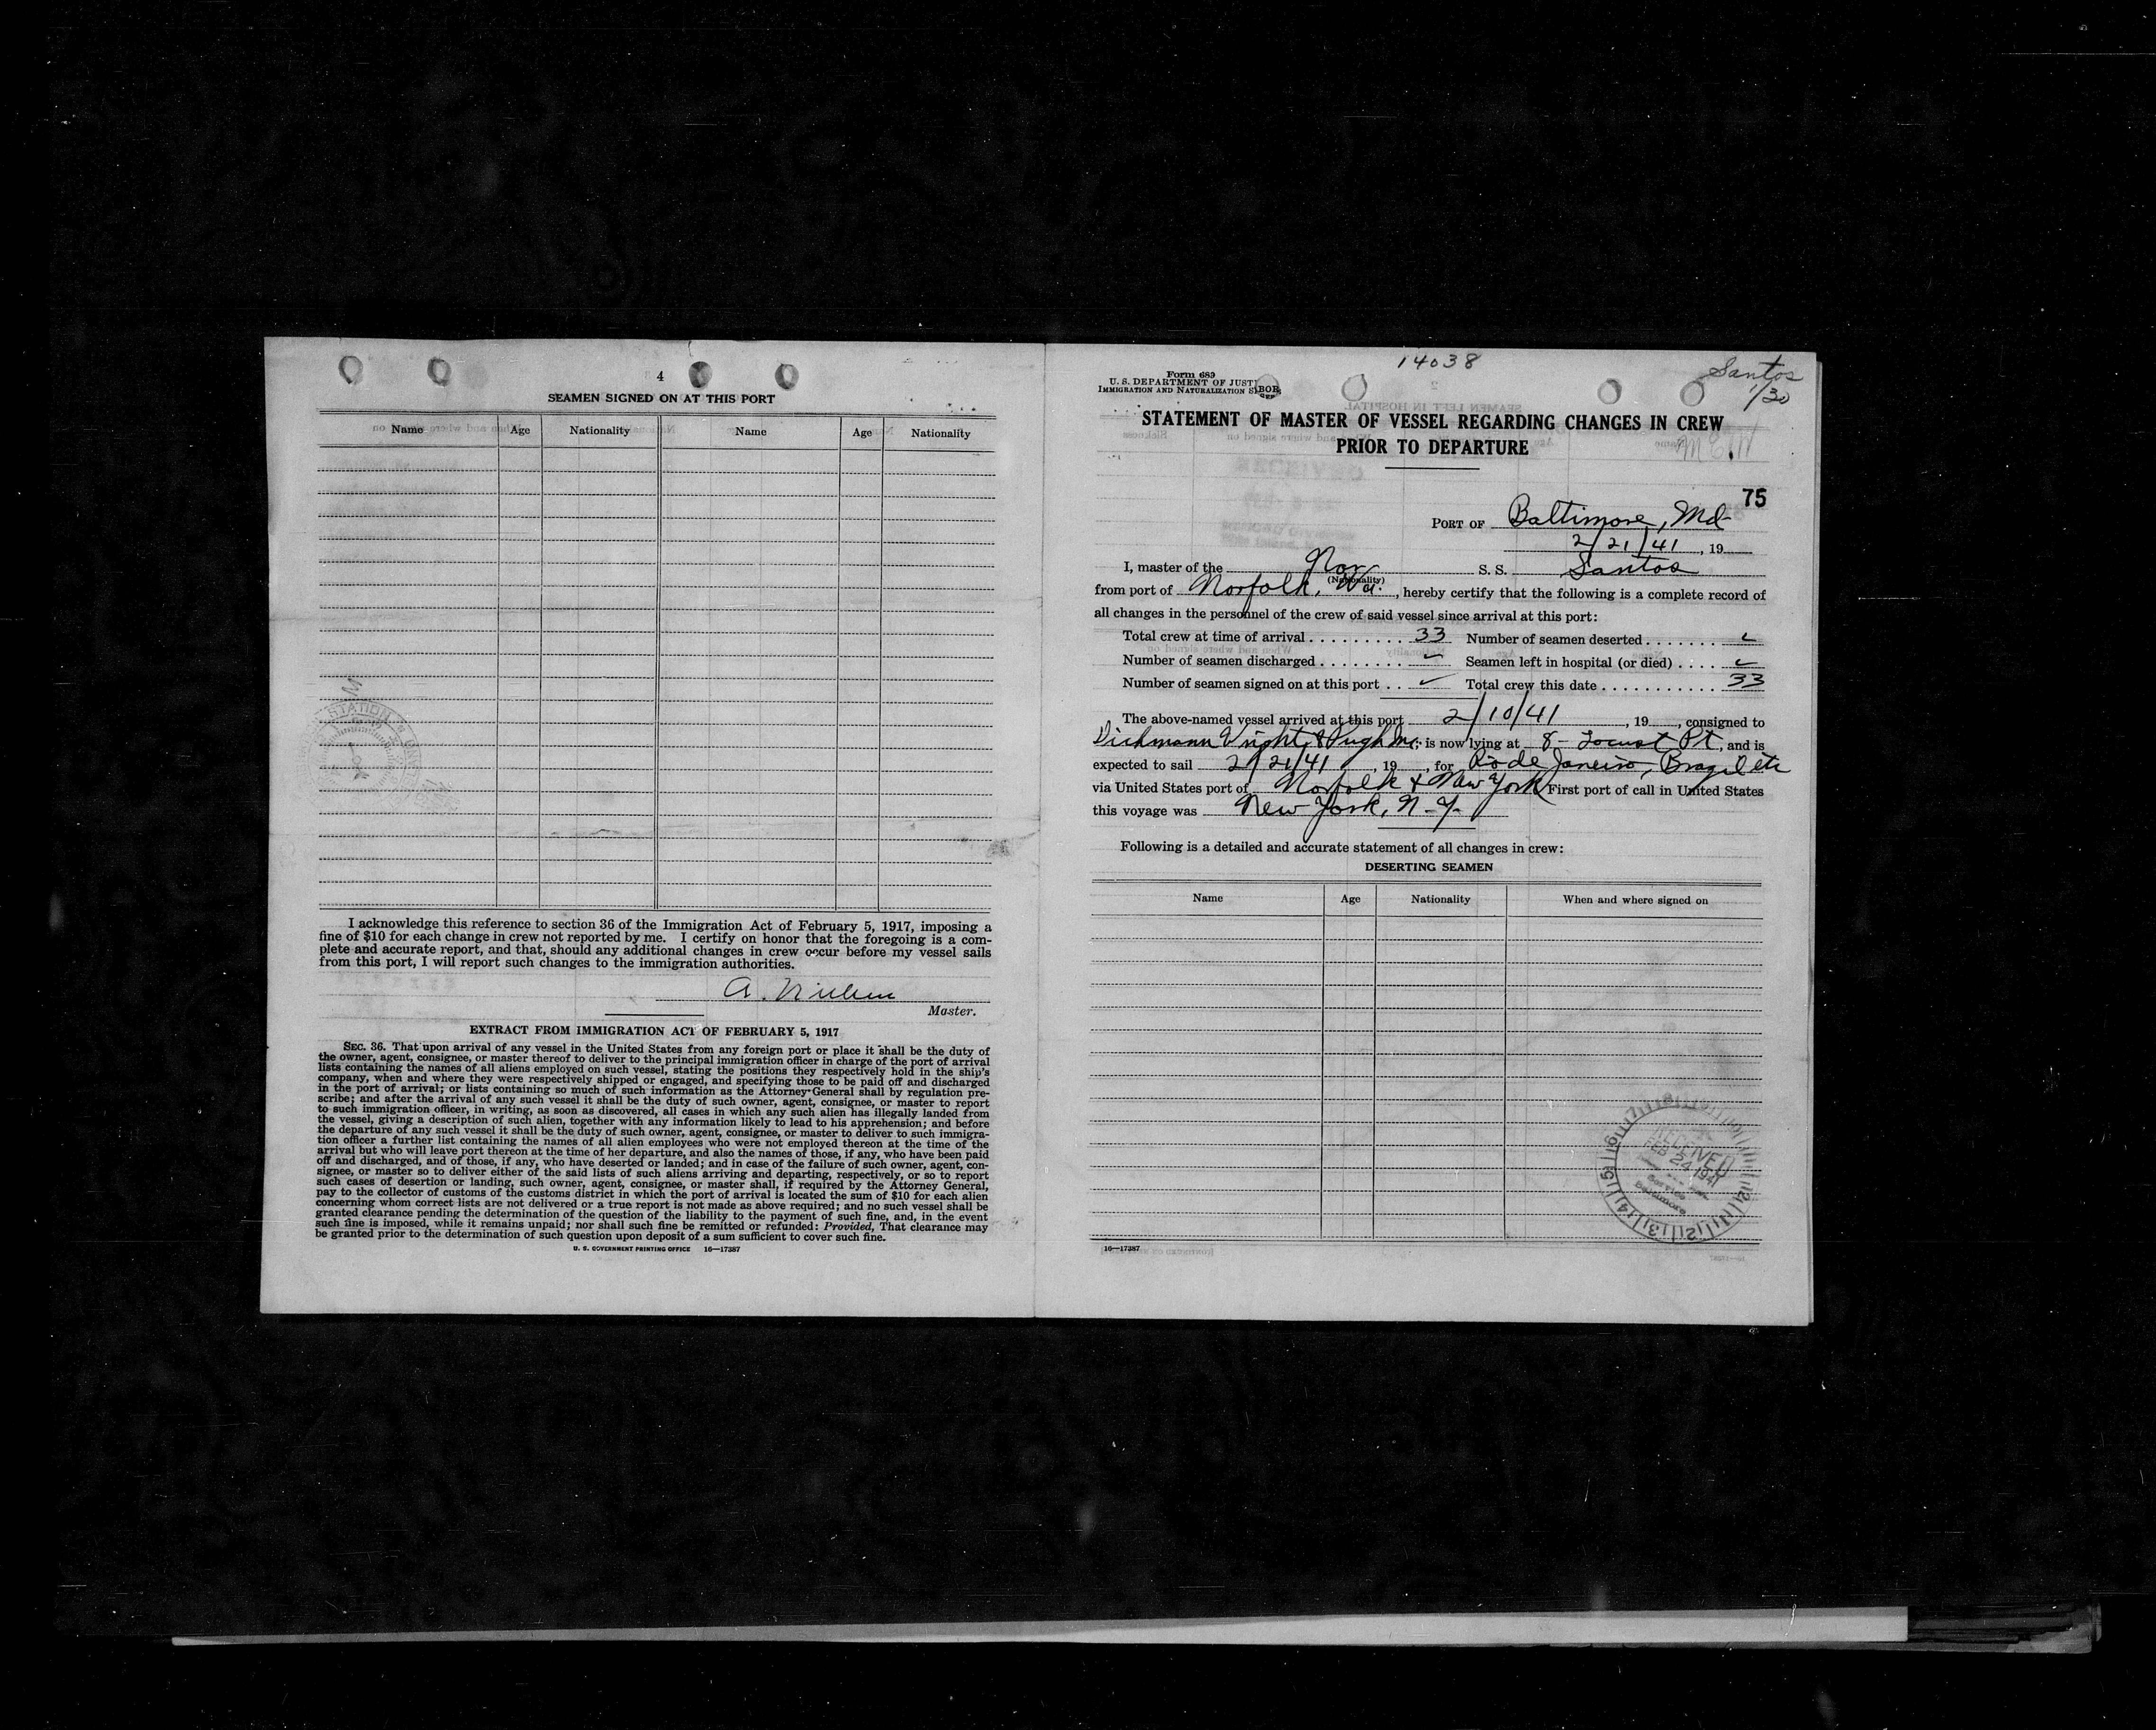 4
SEAMEN SIGNED ON AT THIS PORT
Name Age Nationality Name Age Nationality
I acknowledge this reference to section 36 of the Immigration Act of February 5, 1917, imposing a
fine of $10 for each change in crew not reported by me. I certify on honor that the foregoing is a com-
plete and accurate report, and that, should any additional changes in crew occur before my vessel sails
from this port, I will report such changes to the immigration authorities.
A.
Master.
EXTRACT FROM IMMIGRATION ACT OF FEBRUARY 5, 1917
SEC. 36. That upon arrival of any vessel in the United States from any foreign port or place it shall be the duty of
the owner, agent, consignee, or master thereof to deliver to the principal immigration officer in charge of the port of arrival
lists containing the names of all aliens employed on such vessel, stating the positions they respectively hold in the ship's
company, when and where they were respectively shipped or engaged, and specifying those to be paid off and discharged
in the port of arrival; or lists containing so much of such information as the Attorney General shall by regulation pre-
scribe; and after the arrival of any such vessel it shall be the duty of such owner, agent, consignee, or master to report
to such immigration officer, in writing, as soon as discovered, all cases in which any such alien has illegally landed from
the vessel, giving a description of such alien, together with any information likely to lead to his apprehension; and before
the departure of any such vessel it shall be the duty of such owner, agent, consignee, or master to deliver to such immigra-
tion officer a further list containing the names of all alien employees who were not employed thereon at the time of the
arrival but who will leave port thereon at the time of her departure, and also the names of those, if any, who have been paid
off and discharged, and of those, if any, who have deserted or landed; and in case of the failure of such owner, agent, con-
signee, or master so to deliver either of the said lists of such aliens arriving and departing, respectively, or so to report
such cases of desertion or landing, such owner, agent, consignee, or master shall, if required by the Attorney General,
pay to the collector of customs of the customs district in which the port of arrival is located the sum of $10 for each alien
concerning whom correct lists are not delivered or a true report is not made as above required; and no such vessel shall be
granted clearance pending the determination of the question of the liability to the payment of such fine, and, in the event
such fine is imposed, while it remains unpaid; nor shall such fine be remitted or refunded: Provided, That clearance may
be granted prior to the determination of such question upon deposit of a sum sufficient to cover such fine.
U. S. GOVERNMENT PRINTING OFFICE 16—17387
14038
Santos
1/30
Form 689
U. S. DEPARTMENT OF JUSTI
IMMIGRATION AND NATURALIZATION S
STATEMENT OF MASTER OF VESSEL REGARDING CHANGES IN CREW
PRIOR TO DEPARTURE
75
PORT OF Baltimore, Md
2/21/41, 19
I, master of the Nor S. S. Santos
(Nationality)
from port of Norfolk, Va., hereby certify that the following is a complete record of
all changes in the personnel of the crew of said vessel since arrival at this port:
Total crew at time of arrival 33 Number of seamen deserted ✓
Number of seamen discharged ✓ Seamen left in hospital (or died) ✓
Number of seamen signed on at this port ✓ Total crew this date 33
The above-named vessel arrived at this port 2/10/41, 19, consigned to
Dichmann Wright & Pugh Inc, is now lying at 8 - Locust Pt, and is
expected to sail 2/21/41, 19, for Rio de Janeiro, Brazil etc
via United States port of Norfolk & New York First port of call in United States
this voyage was New York, N-Y-
Following is a detailed and accurate statement of all changes in crew:
DESERTING SEAMEN
Name Age Nationality When and where signed on
RECEIVED
FEB 24 1941
Service
Baltimore
16—17387